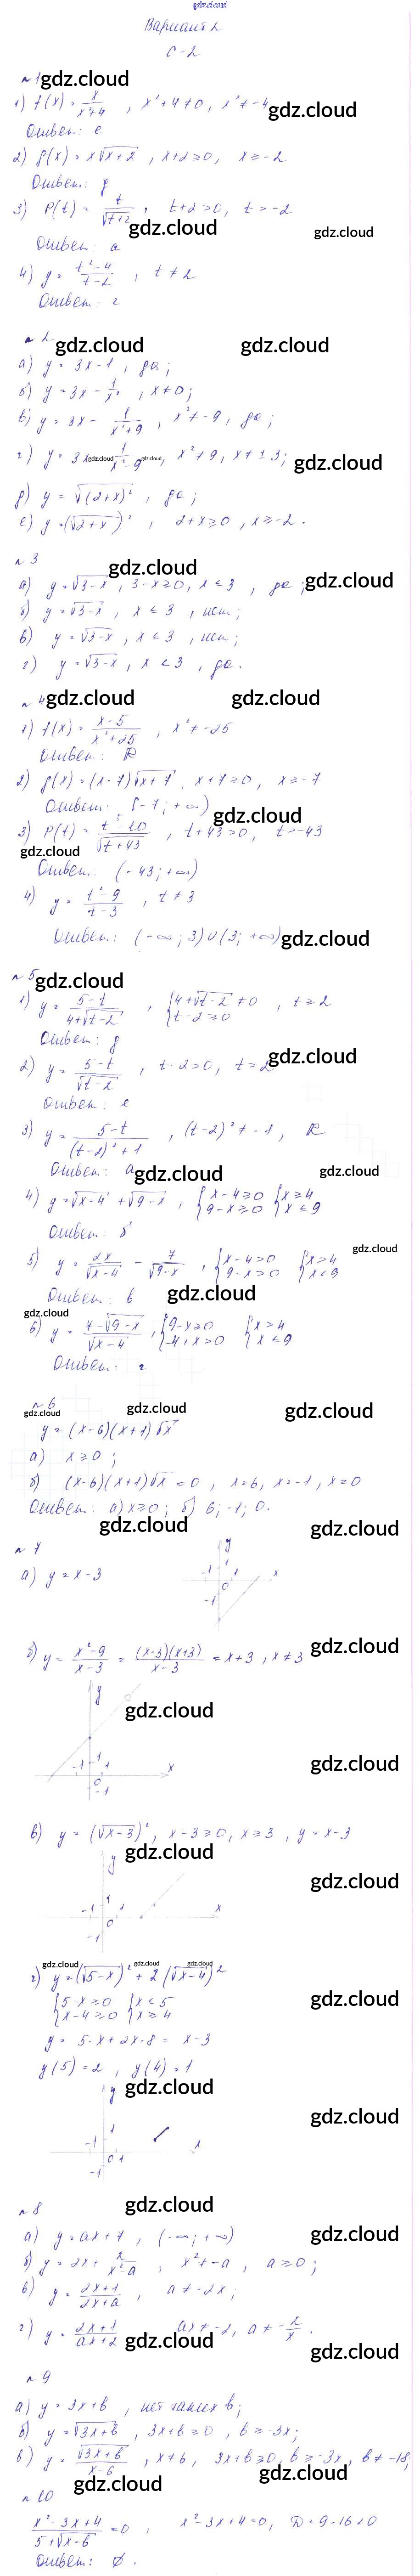 gdz.cloud
Вариант 2
С-2
№1 gdz.cloud
1) f(x) = x/(x²+4) , x²+4≠0, x²≠-4 gdz.cloud
Ответ: е
2) f(x) = x√(x+2) , x+2≥0, x≥-2
Ответ: д
3) P(t) = t/√(t+2) , t+2>0, t>-2
gdz.cloud gdz.cloud
Ответ: а
4) y = (t²-4)/(t-2) , t≠2
Ответ: г
№2 gdz.cloud gdz.cloud
а) y = 3x-1 , да;
б) y = 3x - 1/x² , x≠0;
в) y = 3x - 1/(x²+9) , x²≠-9, да;
г) y = 3x - 1/(x²-9) , x²≠9, x≠±3; gdz.cloud gdz.cloud gdz.cloud
д) y = √((2+x)²) , да;
е) y = (√(2+x))² , 2+x≥0, x≥-2.
№3 gdz.cloud
а) y = √(3-x) , 3-x≥0, x≤3 , да; gdz.cloud
б) y = √(3-x) , x≤3 , нет;
в) y = √(3-x) , x≤3 , нет;
г) y = √(3-x) , x≤3 , да.
№4 gdz.cloud gdz.cloud
1) f(x) = (x-5)/(x²+25) , x²≠-25
Ответ: R
2) f(x) = (x-7)√(x+7) , x+7≥0, x≥-7
Ответ: [-7; +∞) gdz.cloud
3) P(t) = (t²-10)/√(t+43) , t+43>0, t>-43
gdz.cloud
Ответ: (-43; +∞)
4) y = (t²-9)/(t-3) , t≠3
Ответ: (-∞; 3)∪(3; +∞) gdz.cloud
№5 gdz.cloud
1) y = (5-t)/(4+√(t-2)) , {4+√(t-2)≠0 t-2≥0 , t≥2
Ответ: д
2) y = (5-t)/√(t-2) , t-2>0, t>2 gdz.cloud
Ответ: е
3) y = (5-t)/((t-2)²+1) , (t-2)²≠-1, R
Ответ: а gdz.cloud gdz.cloud
4) y = √(x-4) + √(9-x) , {x-4≥0 9-x≥0 {x≥4 x≤9
Ответ: б
gdz.cloud
5) y = 2x/√(x-4) - 7/√(9-x) , {x-4>0 9-x>0 {x>4 x<9
Ответ: в gdz.cloud
gdz.cloud
6) y = (4-√(9-x))/√(x-4) , {9-x≥0 -4+x>0 {x>4 x≤9
Ответ: г
№6
gdz.cloud gdz.cloud gdz.cloud
y = (x-6)(x+1)√x
а) x≥0;
б) (x-6)(x+1)√x = 0 , x=6, x=-1, x=0
Ответ: а) x≥0; б) 6; -1; 0.
gdz.cloud gdz.cloud
№7
а) y = x-3
y
-1 1 1 x
0
-1
б) y = (x²-9)/(x-3) = ((x-3)(x+3))/(x-3) = x+3 , x≠3 gdz.cloud
y
gdz.cloud
gdz.cloud
-1 1 1 x
0
-1
в) y = (√(x-3))² , x-3≥0, x≥3 , y = x-3
gdz.cloud
y
gdz.cloud
-1 1 1 x
0
-1
gdz.cloud gdz.cloud gdz.cloud
г) y = (√(5-x))² + 2(√(x-4))²
{5-x≥0 x-4≥0 {x≤5 x≥4 gdz.cloud
y = 5-x+2x-8 = x-3
y(5) = 2 , y(4) = 1
gdz.cloud
y
gdz.cloud
-1 1 x
0 1
-1
№8 gdz.cloud
а) y = ax+7 , (-∞; +∞) gdz.cloud
б) y = 2x + 2/(x²-a) , x²≠-a , a≥0;
в) y = (2x+1)/(2x+a) , a≠-2x;
г) y = (2x+1)/(ax+2) ax≠-2, a≠-2/x.
gdz.cloud gdz.cloud
№9
а) y = 3x+b , нет таких b;
б) y = √(3x+b) , 3x+b≥0 , b≥-3x;
в) y = √(3x+b)/(x-6) , x≠6, 3x+b≥0, b≥-3x, b≠-18;
gdz.cloud
№10 gdz.cloud
(x²-3x+4)/(5+√(x-6)) = 0 , x²-3x+4=0, D=9-16<0
Ответ: ∅.